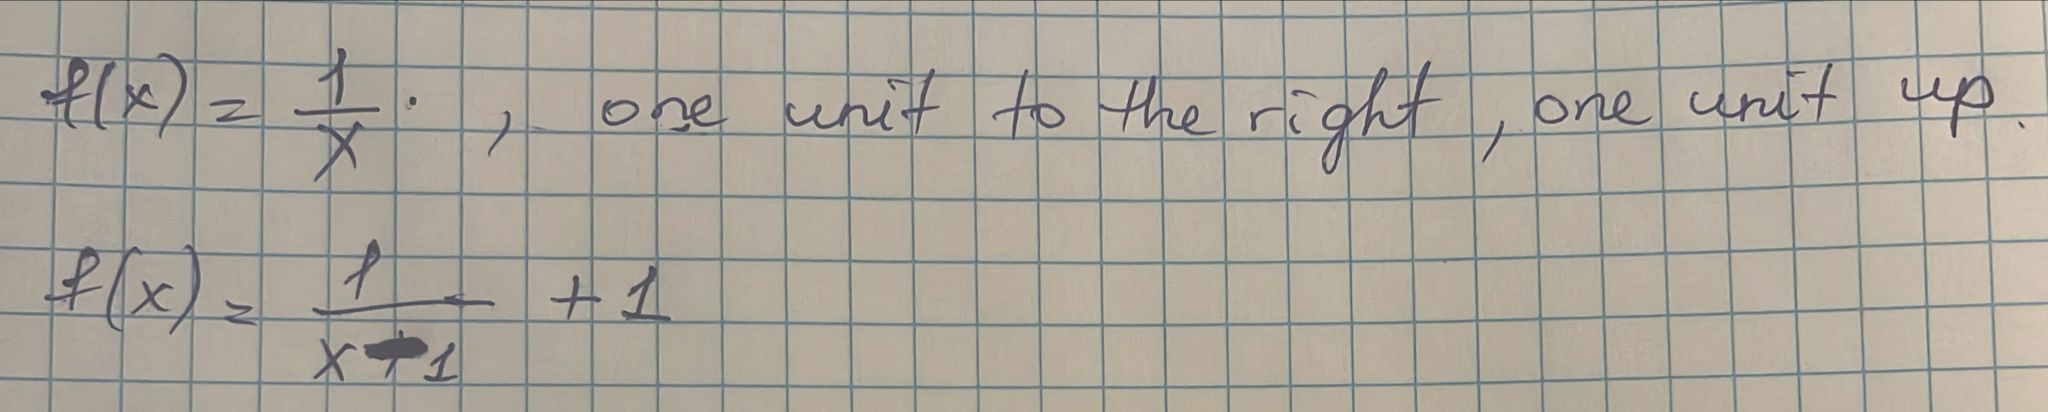 f(x) = 1/x , one unit to the right, one unit up.
f(x) = 1/(x-1) + 1